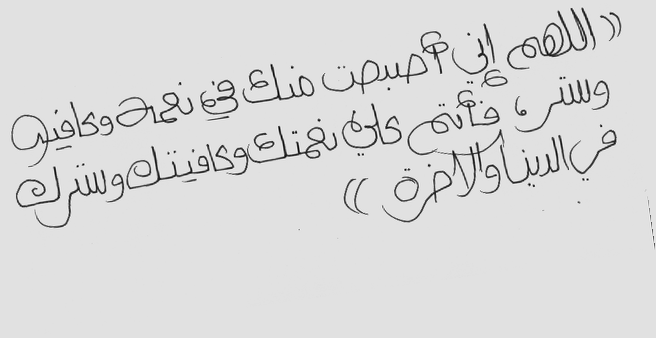 ((اللهم إني أصبحت منك في نعمة وعافية
وستر، فأتم علي نعمتك وعافيتك وسترك
في الدنيا والآخرة))